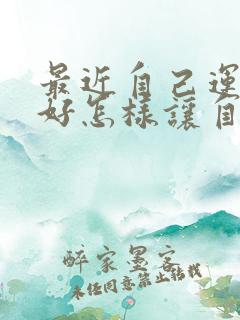 最近自己運
好怎樣讓自
醉家墨客
未任同意禁止转载